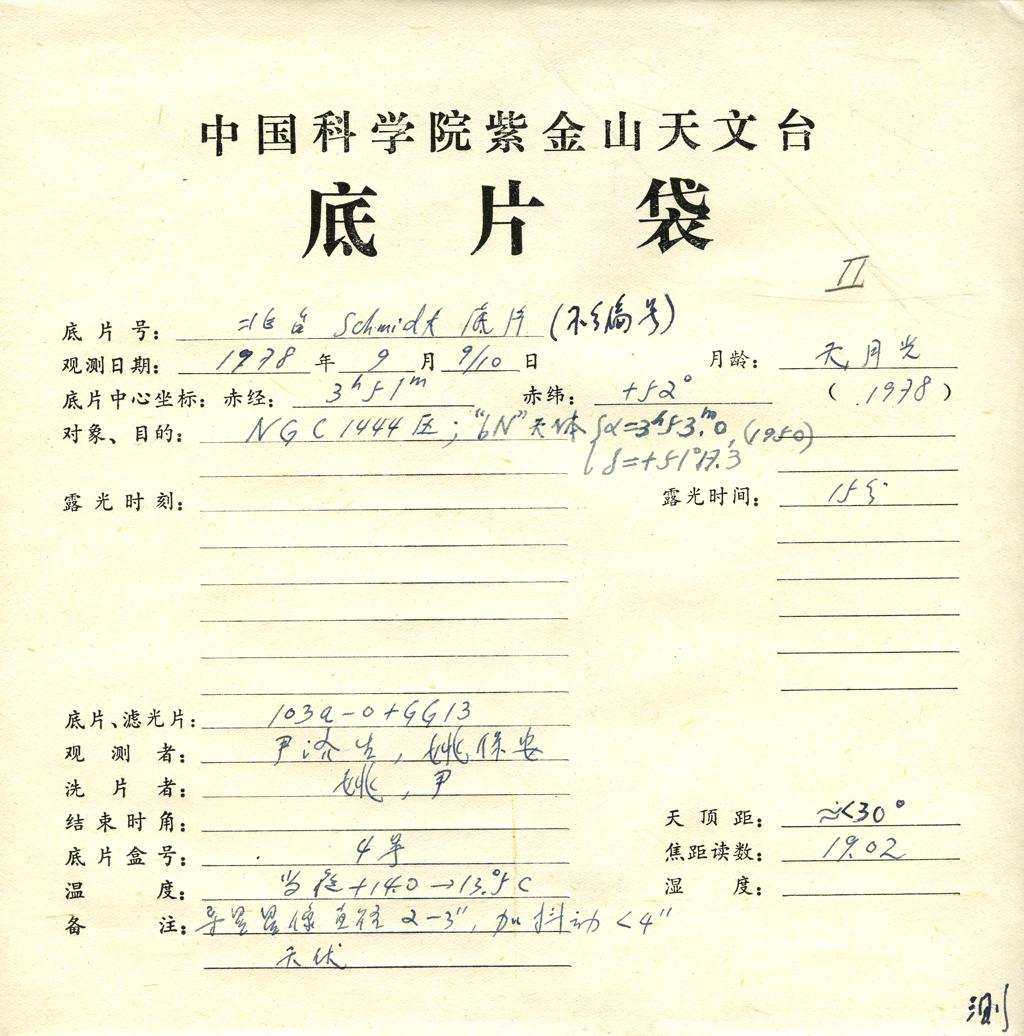 中国科学院紫金山天文台
底片袋
II
底片号: 北台 Schmidt 底片 (不编号)
观测日期: 1978 年 9 月 9/10 日 月龄: 无月光
底片中心坐标: 赤经: 3h51m 赤纬: +52° ( 1978 )
对象、目的: NGC 1444 区; "bN" 天体 { α=3h53m.0, (1950)
δ=+51°17'.3
露光时刻: 露光时间: 15分
底片、滤光片: 103a-O+GG13
观测者: 尹济生, 姚保安
洗片者: 姚, 尹
结束时角: 天顶距: ≈<30°
底片盒号: 4号 焦距读数: 19.02
温度: +14.0→13.°5C 湿度:
备注: 导星星像直径 2-3", 加抖动 <4"
测